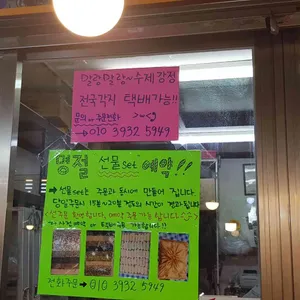 말랑말랑~수제 강정
전국각지 택배가능!!
문의 주문전화
→ 010 3932 5949
명절 선물set 예약!!
→ 선물set는 주문과 동시에 만들어 집니다
당일주문시 15분~20분 정도의 시간이 걸립니다
전화주문 → 010 3932 5949